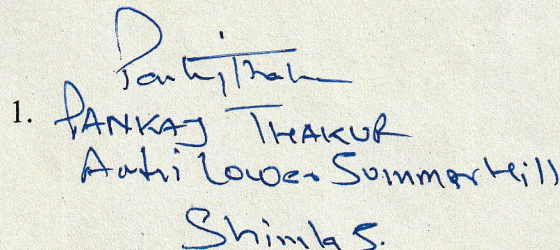 Pankaj Thakur
1. PANKAJ THAKUR
Lower Summer Hill
Shimla 5.